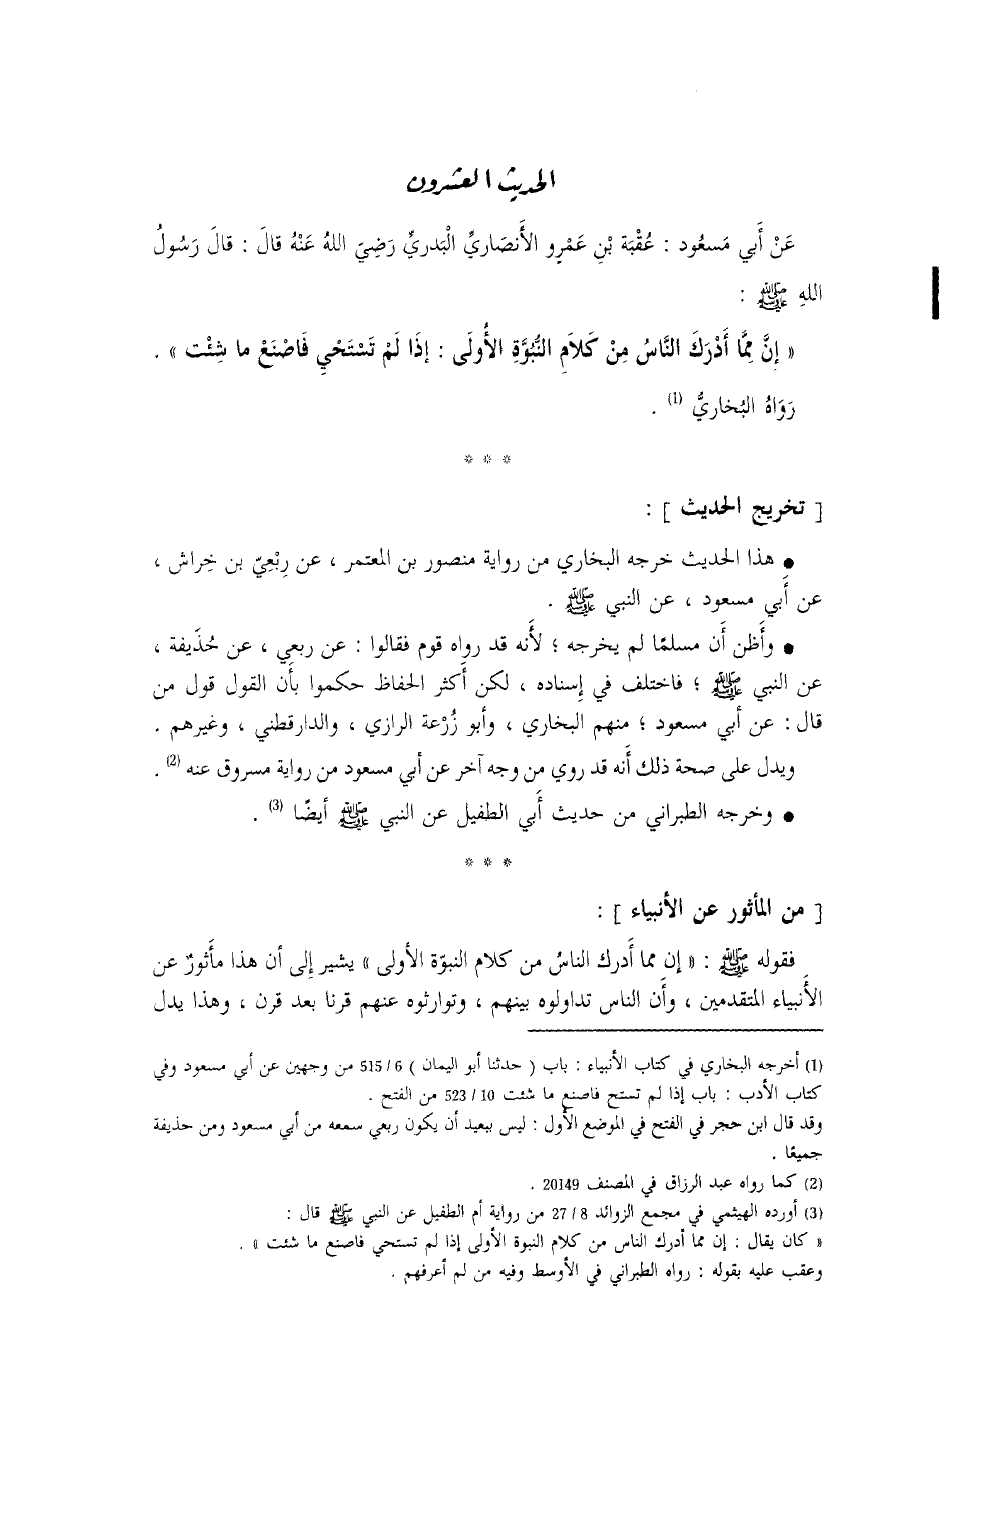 الحديث العشرون
عَنْ أَبي مَسعُود : عُقْبَة بْنِ عَمْرٍو الأَنصَاريِّ الْبَدريِّ رَضِيَ اللهُ عَنْهُ قالَ : قالَ رَسُولُ
اللهِ ﷺ :
« إنَّ مِمَّا أَدْرَكَ النَّاسُ مِنْ كَلاَمِ النُّبُوَّةِ الأُولَى : إذَا لَمْ تَسْتَحْيِ فَاصْنَعْ ما شِئْت » .
رَوَاهُ البُخاريُّ (1) .
* * *
[ تخريج الحديث ] :
● هذا الحديث خرجه البخاري من رواية منصور بن المعتمر ، عن رِبْعِيّ بن خِراش ،
عن أَبي مسعود ، عن النبي ﷺ .
● وأَظن أَن مسلمًا لم يخرجه ؛ لأَنه قد رواه قوم فقالوا : عن ربعي ، عن حُذَيفة ،
عن النبي ﷺ ؛ فاختلف في إِسناده ، لكن أَكثر الحفاظ حكموا بأَن القول قول من
قال : عن أبي مسعود ؛ منهم البخاري ، وأبو زُرْعة الرازي ، والدارقطني ، وغيرهم .
ويدل على صحة ذلك أَنه قد روي من وجه آخر عن أبي مسعود من رواية مسروق عنه (2) .
● وخرجه الطبراني من حديث أَبي الطفيل عن النبي ﷺ أيضًا (3) .
* * *
[ من المأثور عن الأنبياء ] :
فقوله ﷺ : « إن مما أَدرك الناسُ من كلام النبوّة الأولى » يشير إِلى أن هذا مأَثورٌ عن
الأَنبياء المتقدمين ، وأَن الناس تداولوه بينهم ، وتوارثوه عنهم قرنا بعد قرن ، وهذا يدل
(1) أخرجه البخاري في كتاب الأنبياء : باب ( حدثنا أبو اليمان ) 6 / 515 من وجهين عن أبي مسعود وفي
كتاب الأدب : باب إذا لم تستح فاصنع ما شئت 10 / 523 من الفتح .
وقد قال ابن حجر في الفتح في الموضع الأول : ليس ببعيد أن يكون ربعي سمعه من أبي مسعود ومن حذيفة
جميعًا .
(2) كما رواه عبد الرزاق في المصنف 20149 .
(3) أورده الهيثمي في مجمع الزوائد 8 / 27 من رواية أم الطفيل عن النبي ﷺ قال :
« كان يقال : إن مما أدرك الناس من كلام النبوة الأولى إذا لم تستحي فاصنع ما شئت » .
وعقب عليه بقوله : رواه الطبراني في الأوسط وفيه من لم أعرفهم .